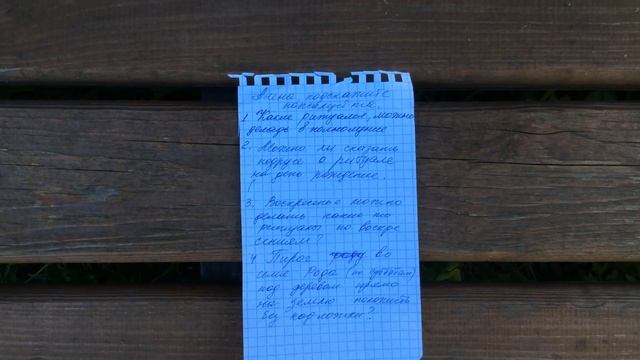 Алёна подскажите
пожалуйста.
1. Какие ритуалы можно
делать в полнолуние
2. Можно ли сказать
подруге о ритуале
на день рождение.
3. Воскресенье можно
делать какие то
ритуалы по воскре
сением?
4 Пирог во
семя Рода (по субботам)
под деревом прямо
на землю положить
без подложки?